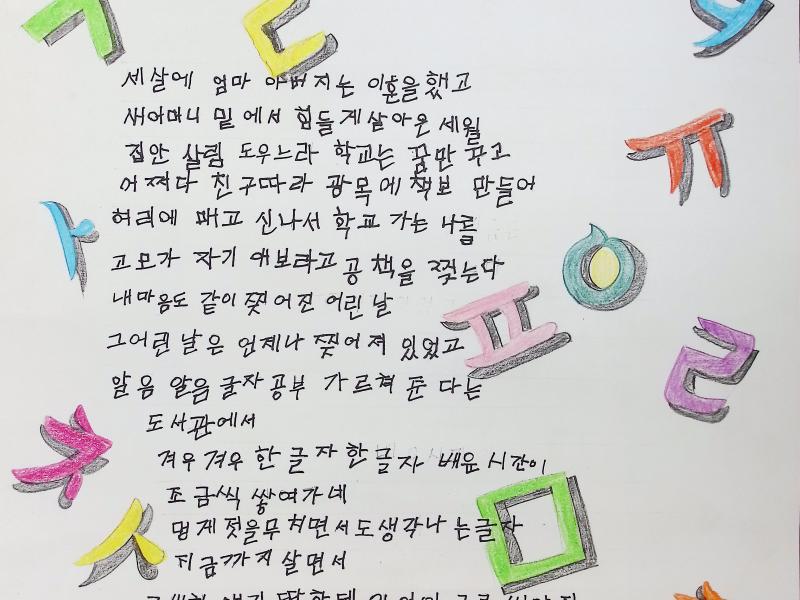 세살에 엄마 아버지는 이혼을했고
새어머니 밑에서 힘들게살아온 세월
집안 살림 도우느라 학교는 꿈만 꾸고
어쩌다 친구따라 광목에책보 만들어
허리에 매고 신나서 학교 가는 나를
고모가 자기 애보라고 공책을 찢는다
내마음도 같이찢어진 어린날
그어린날은 언제나 찢어져 있었고
알음 알음글자공부 가르쳐 준 다는
도서관에서
겨우겨우 한글자한글자 배운 시간이
조금씩 쌓여가네
멍게젓을무치면서도생각나는글자
지금까지살면서